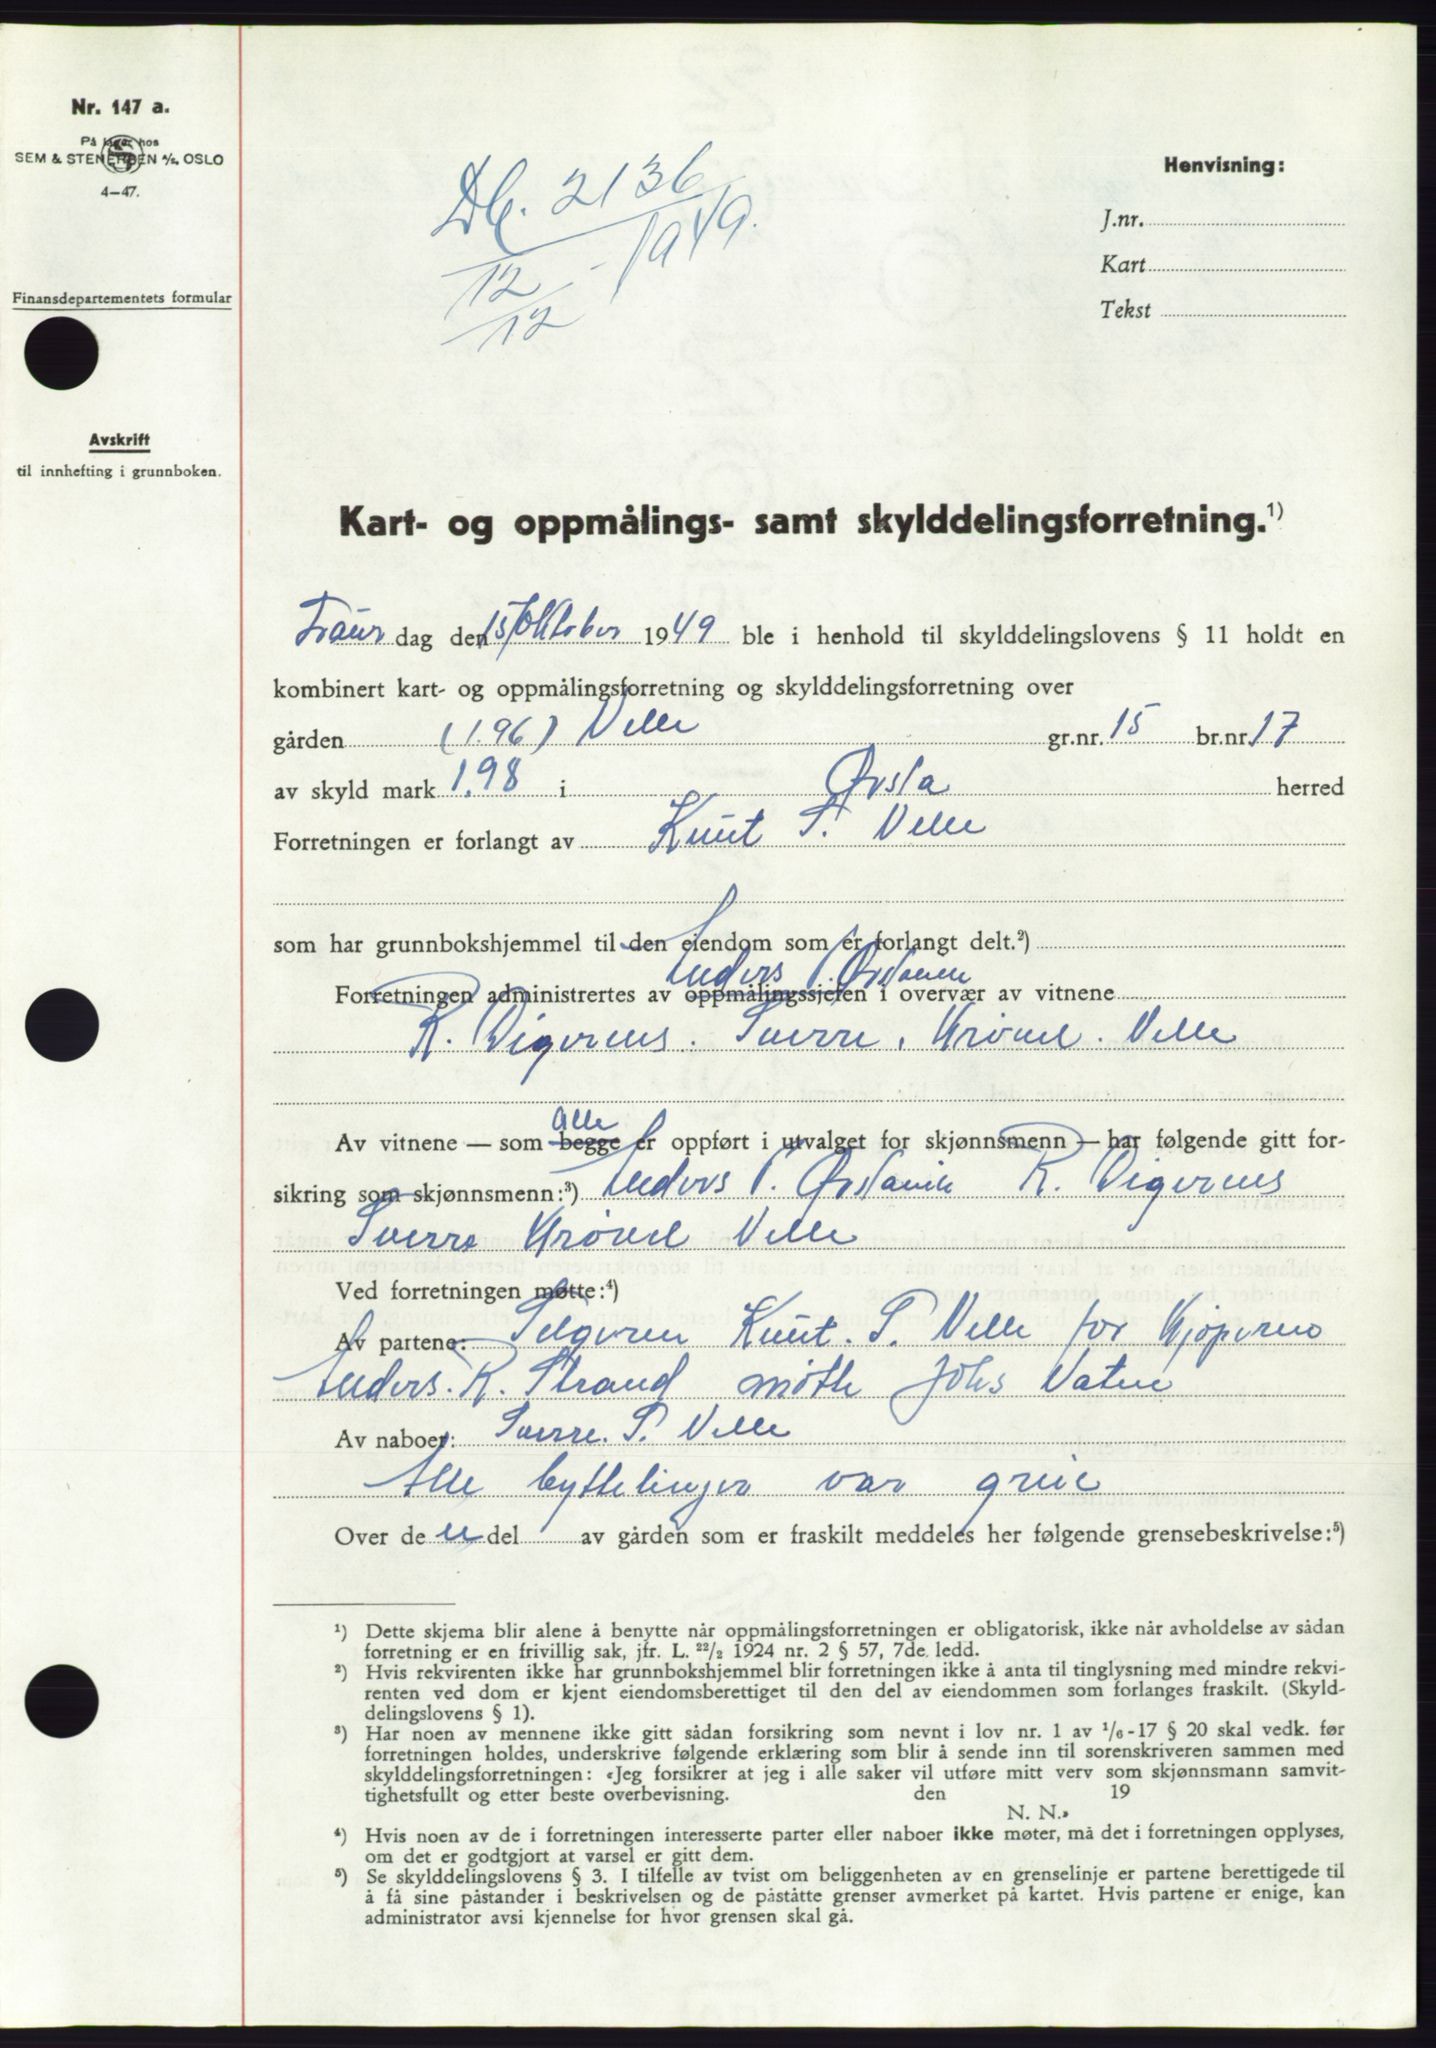 Nr. 147 a.
På lager hos
SEM & STENERSEN A/S, OSLO
4-47.
Finansdepartementets formular
Avskrift
til innhefting i grunnboken.
Db. 2136
12/12 - 1949.
Henvisning:
J.nr.
Kart
Tekst
Kart- og oppmålings- samt skylddelingsforretning.¹)
dag den 15/Oktober 1949 ble i henhold til skylddelingslovens § 11 holdt en
kombinert kart- og oppmålingsforretning og skylddelingsforretning over
gården (1.96) Velle gr.nr. 15 br.nr. 17
av skyld mark 1.98 i Ørsta herred
Forretningen er forlangt av Knut S. Velle
som har grunnbokshjemmel til den eiendom som er forlangt delt.²)
Anders P. Ørstavik
Forretningen administrertes av oppmålingssjefen i overvær av vitnene
R. Digernes. Sverre. Krövel. Velle
alle
Av vitnene — som begge er oppført i utvalget for skjønnsmenn — har følgende gitt for-
sikring som skjønnsmenn:³) Anders P. Ørstavik R. Digernes
Sverre Krövel Velle
Ved forretningen møtte:⁴)
Av partene: Selgeren Knut. S. Velle for Kjøperens
Anders. R. Strand møtte Johs Vatne
Av naboer: Sverre. S. Velle
Alle byttelinjer var greie
Over de n del av gården som er fraskilt meddeles her følgende grensebeskrivelse:⁵)
¹) Dette skjema blir alene å benytte når oppmålingsforretningen er obligatorisk, ikke når avholdelse av sådan
forretning er en frivillig sak, jfr. L. 22/2 1924 nr. 2 § 57, 7de. ledd.
²) Hvis rekvirenten ikke har grunnbokshjemmel blir forretningen ikke å anta til tinglysning med mindre rekvi-
renten ved dom er kjent eiendomsberettiget til den del av eiendommen som forlanges fraskilt. (Skyld-
delingslovens § 1).
³) Har noen av mennene ikke gitt sådan forsikring som nevnt i lov nr. 1 av 1/6-17 § 20 skal vedk. før
forretningen holdes, underskrive følgende erklæring som blir å sende inn til sorenskriveren sammen med
skylddelingsforretningen: «Jeg forsikrer at jeg i alle saker vil utføre mitt verv som skjønnsmann samvit-
tighetsfullt og etter beste overbevisning. den 19
N. N.»
⁴) Hvis noen av de i forretningen interesserte parter eller naboer ikke møter, må det i forretningen opplyses,
om det er godtgjort at varsel er gitt dem.
⁵) Se skylddelingslovens § 3. I tilfelle av tvist om beliggenheten av en grenselinje er partene berettigede til
å få sine påstander i beskrivelsen og de påståtte grenser avmerket på kartet. Hvis partene er enige, kan
administrator avsi kjennelse for hvor grensen skal gå.